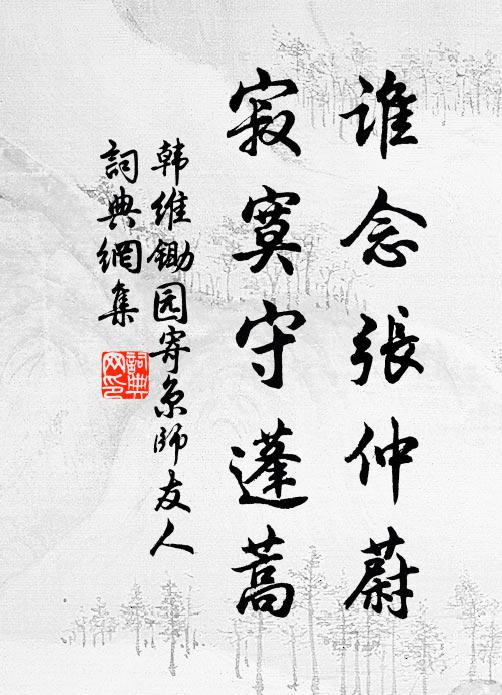 谁念張仲蔚
寂寞守蓬蒿
韩維鋤园寄京師友人
詞典網集
詞典网印